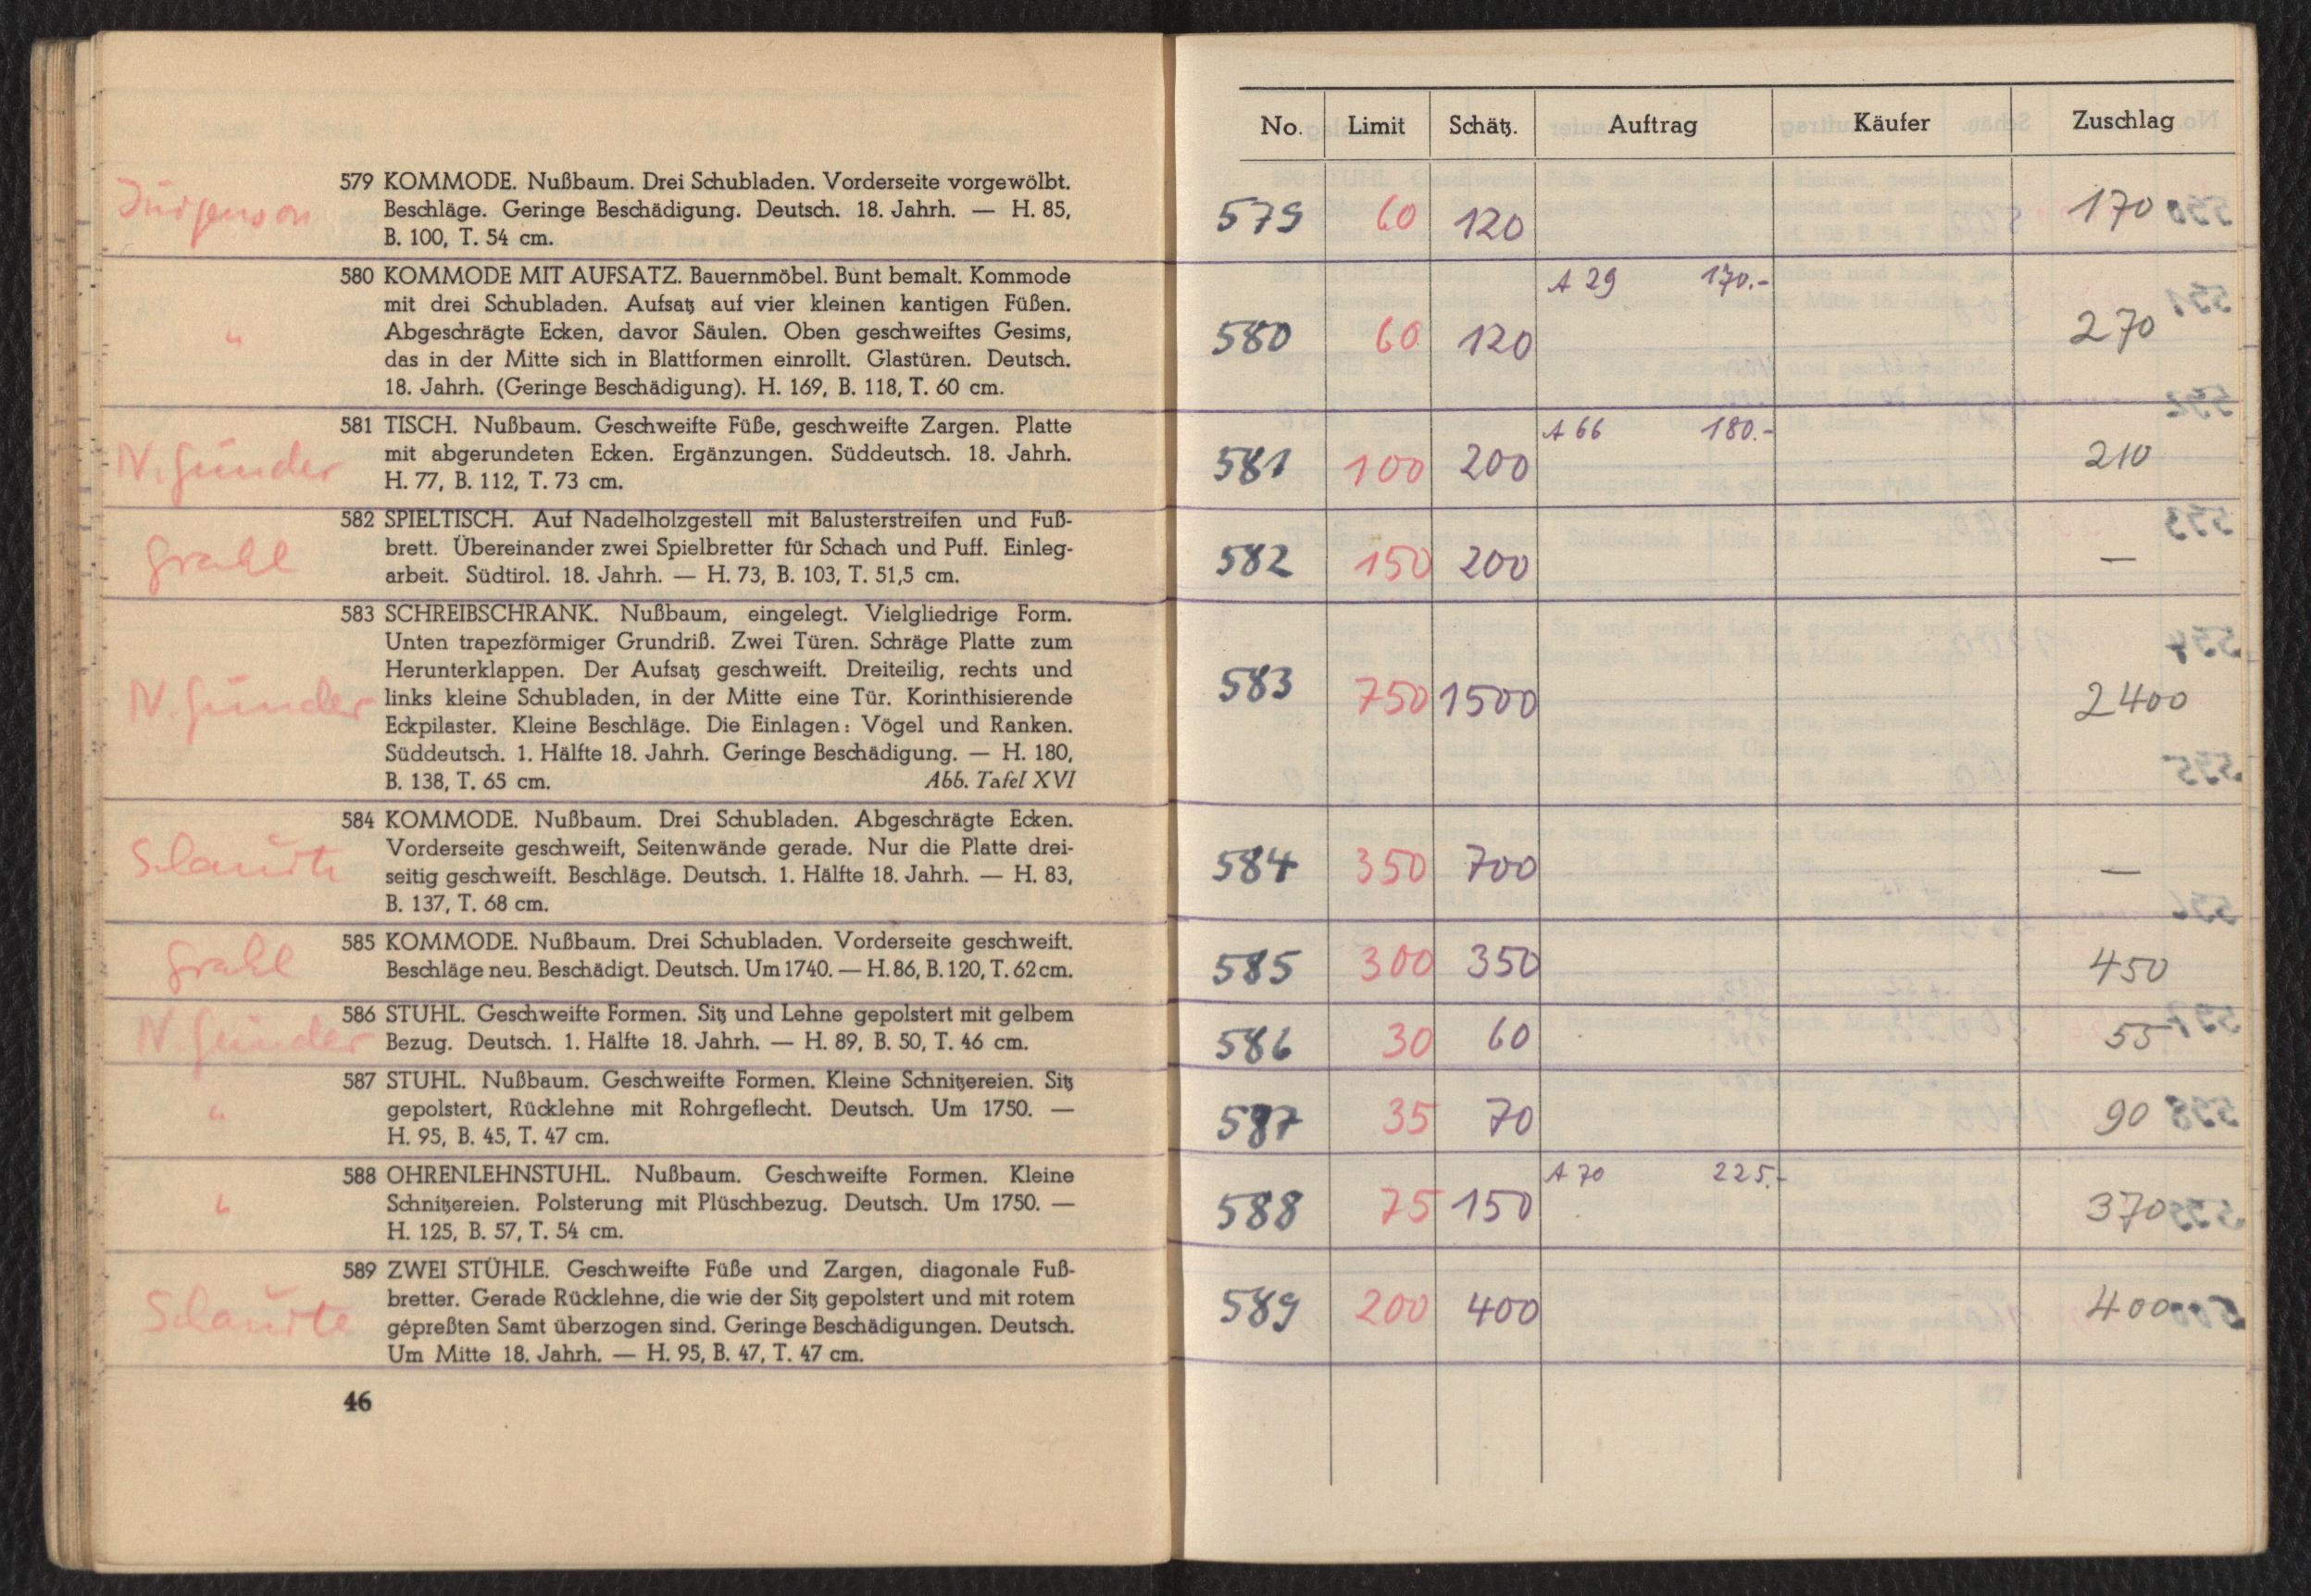 Jürgenson
579 KOMMODE. Nußbaum. Drei Schubladen. Vorderseite vorgewölbt.
Beschläge. Geringe Beschädigung. Deutsch. 18. Jahrh. — H. 85,
B. 100, T. 54 cm.
580 KOMMODE MIT AUFSATZ. Bauernmöbel. Bunt bemalt. Kommode
mit drei Schubladen. Aufsatz auf vier kleinen kantigen Füßen.
Abgeschrägte Ecken, davor Säulen. Oben geschweiftes Gesims,
"
das in der Mitte sich in Blattformen einrollt. Glastüren. Deutsch.
18. Jahrh. (Geringe Beschädigung). H. 169, B. 118, T. 60 cm.
581 TISCH. Nußbaum. Geschweifte Füße, geschweifte Zargen. Platte
N. Günder
mit abgerundeten Ecken. Ergänzungen. Süddeutsch. 18. Jahrh.
H. 77, B. 112, T. 73 cm.
582 SPIELTISCH. Auf Nadelholzgestell mit Balusterstreifen und Fuß-
Grahl
brett. Übereinander zwei Spielbretter für Schach und Puff. Einleg-
arbeit. Südtirol. 18. Jahrh. — H. 73, B. 103, T. 51,5 cm.
583 SCHREIBSCHRANK. Nußbaum, eingelegt. Vielgliedrige Form.
Unten trapezförmiger Grundriß. Zwei Türen. Schräge Platte zum
Herunterklappen. Der Aufsatz geschweift. Dreiteilig, rechts und
N. Günder
links kleine Schubladen, in der Mitte eine Tür. Korinthisierende
Eckpilaster. Kleine Beschläge. Die Einlagen: Vögel und Ranken.
Süddeutsch. 1. Hälfte 18. Jahrh. Geringe Beschädigung. — H. 180,
B. 138, T. 65 cm. Abb. Tafel XVI
584 KOMMODE. Nußbaum. Drei Schubladen. Abgeschrägte Ecken.
Vorderseite geschweift, Seitenwände gerade. Nur die Platte drei-
seitig geschweift. Beschläge. Deutsch. 1. Hälfte 18. Jahrh. — H. 83,
B. 137, T. 68 cm.
585 KOMMODE. Nußbaum. Drei Schubladen. Vorderseite geschweift.
Grahl
Beschläge neu. Beschädigt. Deutsch. Um 1740. — H. 86, B. 120, T. 62 cm.
586 STUHL. Geschweifte Formen. Sitz und Lehne gepolstert mit gelbem
N. Günder
Bezug. Deutsch. 1. Hälfte 18. Jahrh. — H. 89, B. 50, T. 46 cm.
587 STUHL. Nußbaum. Geschweifte Formen. Kleine Schnitzereien. Sitz
"
gepolstert, Rücklehne mit Rohrgeflecht. Deutsch. Um 1750. —
H. 95, B. 45, T. 47 cm.
588 OHRENLEHNSTUHL. Nußbaum. Geschweifte Formen. Kleine
"
Schnitzereien. Polsterung mit Plüschbezug. Deutsch. Um 1750. —
H. 125, B. 57, T. 54 cm.
589 ZWEI STÜHLE. Geschweifte Füße und Zargen, diagonale Fuß-
bretter. Gerade Rücklehne, die wie der Sitz gepolstert und mit rotem
gepreßten Samt überzogen sind. Geringe Beschädigungen. Deutsch.
Um Mitte 18. Jahrh. — H. 95, B. 47, T. 47 cm.
46
No. Limit Schätz. Auftrag Käufer Zuschlag
579 60 120 170
A 29 170.-
580 60 120 270
A 66 180.-
581 100 200 210
582 150 200 —
583 750 1500 2400
584 350 700 —
585 300 350 450
586 30 60 55
587 35 70 90
A 70 225.-
588 75 150 370
589 200 400 400